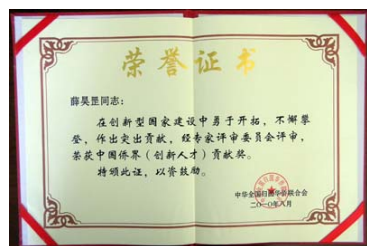 荣誉证书
薛昊罡同志：
在创新型国家建设中勇于开拓，不懈攀
登，作出突出贡献，经专家评审委员会评审，
荣获中国侨界（创新人才）贡献奖。
特颁此证，以资鼓励。
中华全国归国华侨联合会
二〇一〇年八月